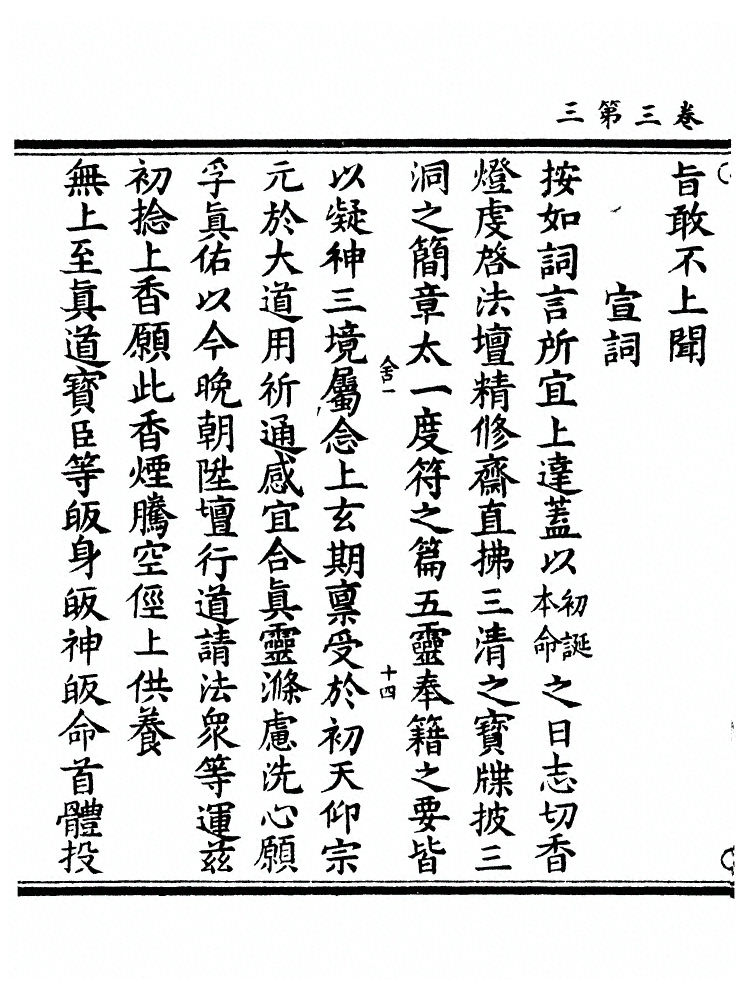 卷三第三
旨敢不上聞
宣詞
按如詞言所宜上達蓋以初誕本命之日志切香
燈虔啓法壇精修齋直拂三清之寶牒披三
洞之簡章太一度符之篇五靈奉籍之要皆
舍一
十四
以凝神三境屬念上玄期禀受於初天仰宗
元於大道用祈通感宜合眞靈滌慮洗心願
孚眞佑以今晚朝陞壇行道請法衆等運茲
初捻上香願此香煙騰空徑上供養
無上至眞道寶臣等皈身皈神皈命首體投